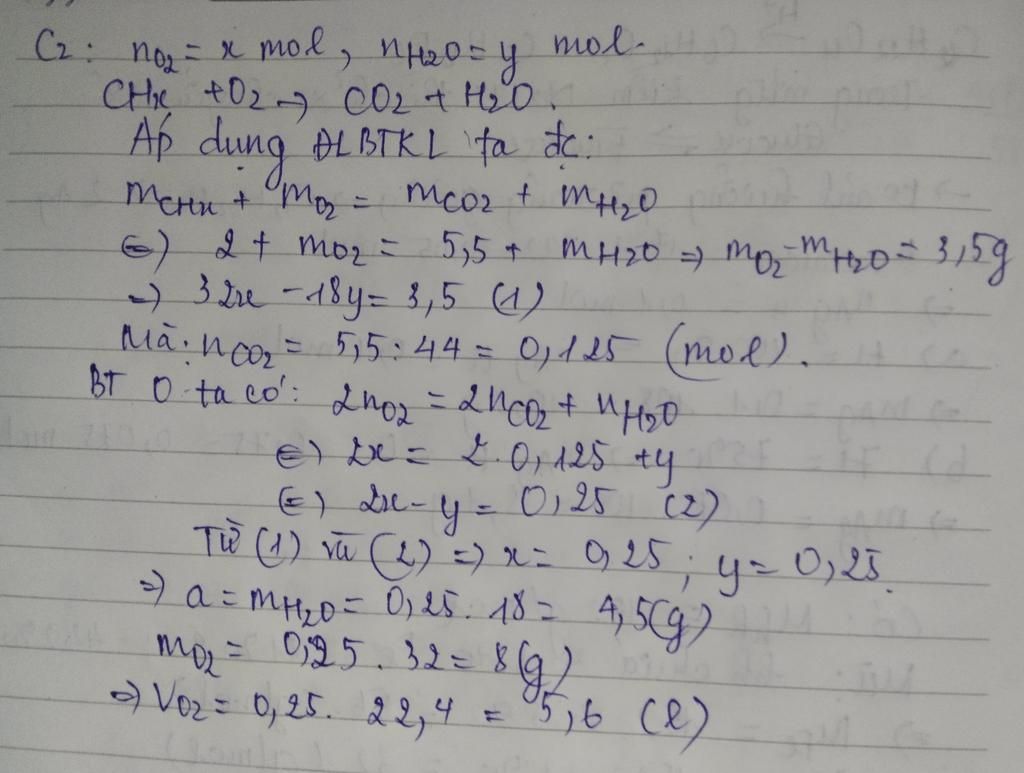 C2: nO2 = x mol, nH2O = y mol.
CHx + O2 → CO2 + H2O.
Áp dụng ĐLBTKL ta đc:
mCHx + mO2 = mCO2 + mH2O
(=) 2 + mO2 = 5,5 + mH2O => mO2 - mH2O = 3,5g
=> 32x - 18y = 3,5 (1)
Mà: nCO2 = 5,5 : 44 = 0,125 (mol).
BT O ta có: 2nO2 = 2nCO2 + nH2O
(=) 2x = 2.0,125 + y
(=) 2x - y = 0,25 (2)
Từ (1) và (2) => x = 0,25 ; y = 0,25.
=> a = mH2O = 0,25. 18 = 4,5(g)
mO2 = 0,25 . 32 = 8(g)
=> VO2 = 0,25. 22,4 = 5,6 (l)